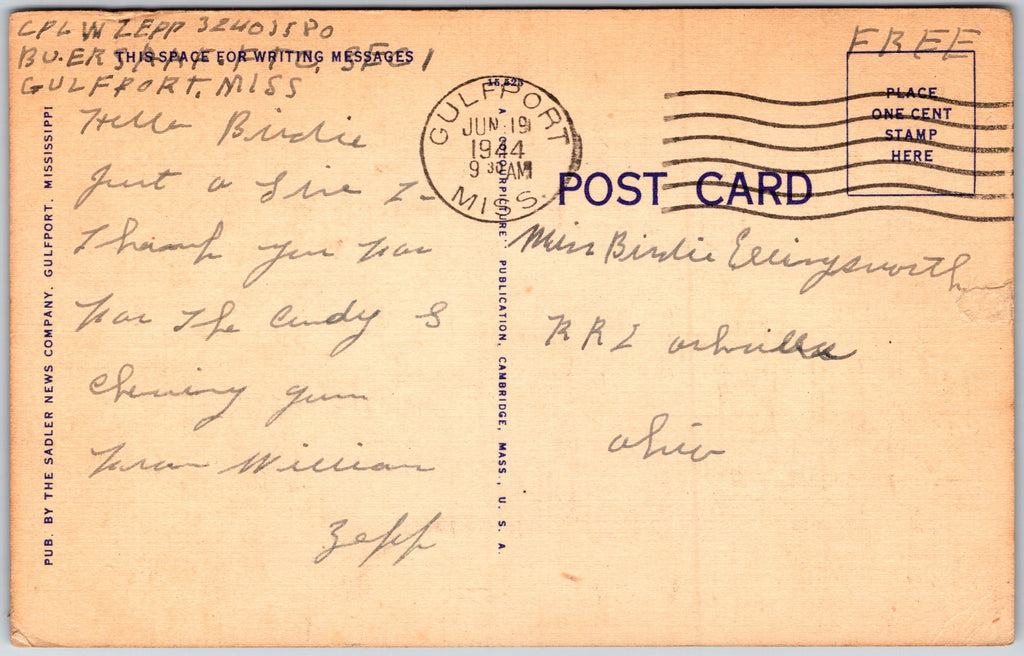 CPL W ZEPP 32403580
THIS SPACE FOR WRITING MESSAGES
SEC 1
GULFPORT, MISS
Hello Birdie
Just a line to
Thank you for
for the Candy &
chewing gum
from William
Zepp
PUB. BY THE SADLER NEWS COMPANY, GULFPORT, MISSISSIPPI
15,525
A COLORPICTURE PUBLICATION, CAMBRIDGE, MASS., U. S. A.
GULFPORT
JUN 19
1944
9 30 AM
MISS.
FREE
PLACE
ONE CENT
STAMP
HERE
POST CARD
Miss Birdie Ellingsworth
RR1 ashville
ohio